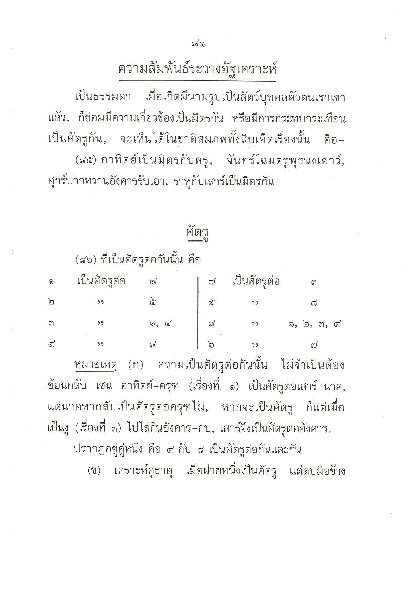 ความสัมพันธ์ระวางอัฐเคราะห์
เป็นธรรมดา เมื่อเกิดมีนามรูปเป็นสัตว์บุคคลตัวตนเราเขา
แล้ว, ก็ย่อมมีความเกี่ยวข้องเป็นมิตรกัน หรือมีการกระทบกระเทือน
เป็นศัตรูกัน, จะเห็นได้ในชาติสมภพทั้งสิบเอ็ดเรื่องนั้น คือ-
(๘๕) อาทิตย์เป็นมิตรกับครู, จันทร์โฉมตรูพุธนงเยาว์,
ศุกร์ปากหวานอังคารรับเอา, ราหูกับเสาร์เป็นมิตรกัน
ศัตรู
(๘๖) ที่เป็นศัตรูต่อกันนั้น คือ
๑ เป็นศัตรูต่อ ๗ ๗ เป็นศัตรูต่อ
๒ ” ๕ ๕ ” ๘
๓ ” ” ๑, ๒, ๓, ๙
” ๖ ” ๗
หมายเหตุ (ก) ความเป็นศัตรูต่อกันนั้น ไม่จำเป็นต้อง
ย้อนกลับ เช่น อาทิตย์-ครุฑ (เรื่องที่ ๑) เป็นศัตรูต่อเสาร์ นาค,
แต่นาคหากลับเป็นศัตรูต่อครุฑไม่, หากจะเป็นศัตรู ก็แต่เมื่อ
เป็นงู (เรื่องที่ ๓) ไปได้กันอังคาร-กบ, เสาร์จึงเป็นศัตรูต่ออังคาร,
ปรากฏอยู่คู่หนึ่ง คือ ๙ กับ ๘ เป็นศัตรูต่อกันและกัน
(ข) เคราะห์คู่ธาตุ เมื่อฝ่ายหนึ่งเป็นศัตรู แต่ตบมือข้าง